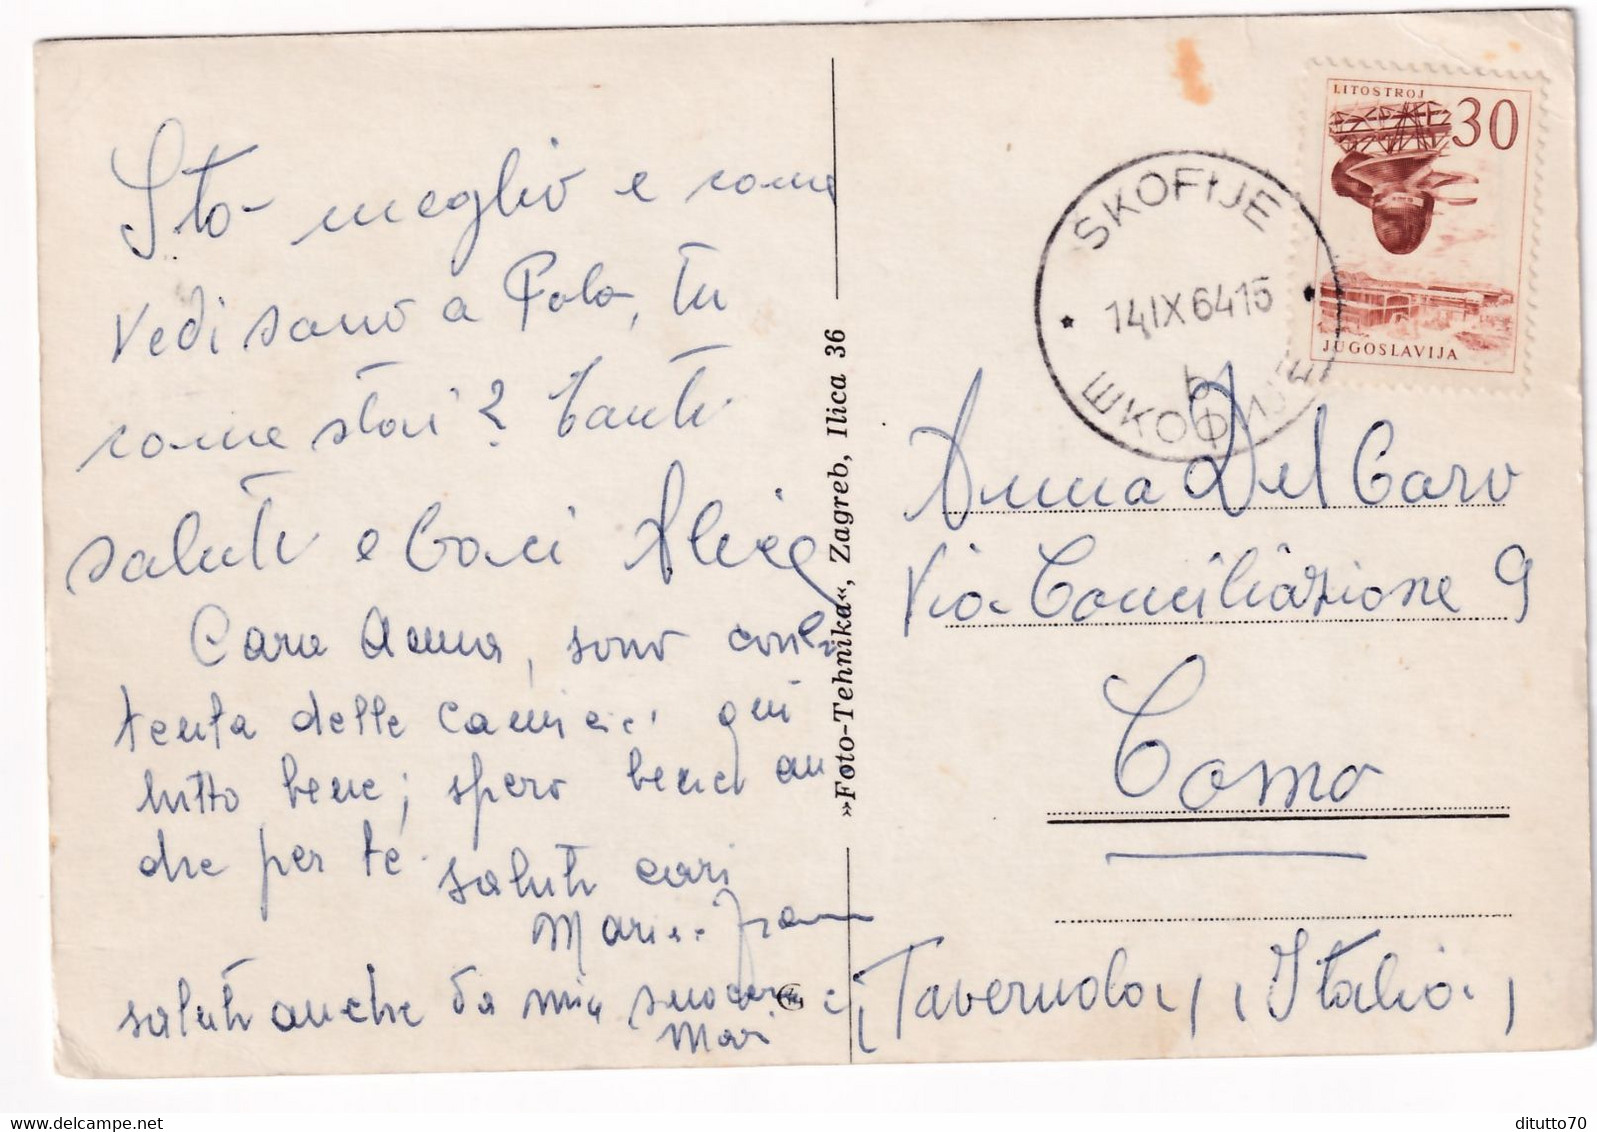 Sto meglio e come
vedi sono a Pola, tu
come stai? Tanti
saluti e baci Alice
Cara Anna, sono con
tenta delle camicie qui
tutto bene; spero bene an
che per te. saluti cari
Maria
saluti anche da mia suocera e
Mari
»Foto-Tehnika«, Zagreb, Ilica 36
LITOSTROJ
30
JUGOSLAVIJA
ŠKOFIJE
14 IX 64 15
b
ШКОФИЈЕ
Anna Del Caro
Via Conciliazione 9
Como
(Tavernola) (Italia)
ditutto70